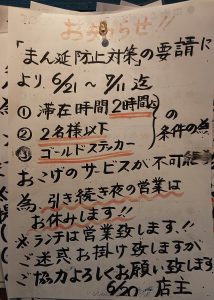 お知らせ!!
「まん延防止対策」の要請に
より 6/21～7/11迄
①滞在時間2時間
②2名様以下
③ゴールドステッカー
の
条件の為
おこげのサービスが不可能
為、引き続き夜の営業は
お休みします!!
※ランチは営業致します!!
ご迷惑お掛け致しますが
ご協力よろしくお願い致します
6/20 店主